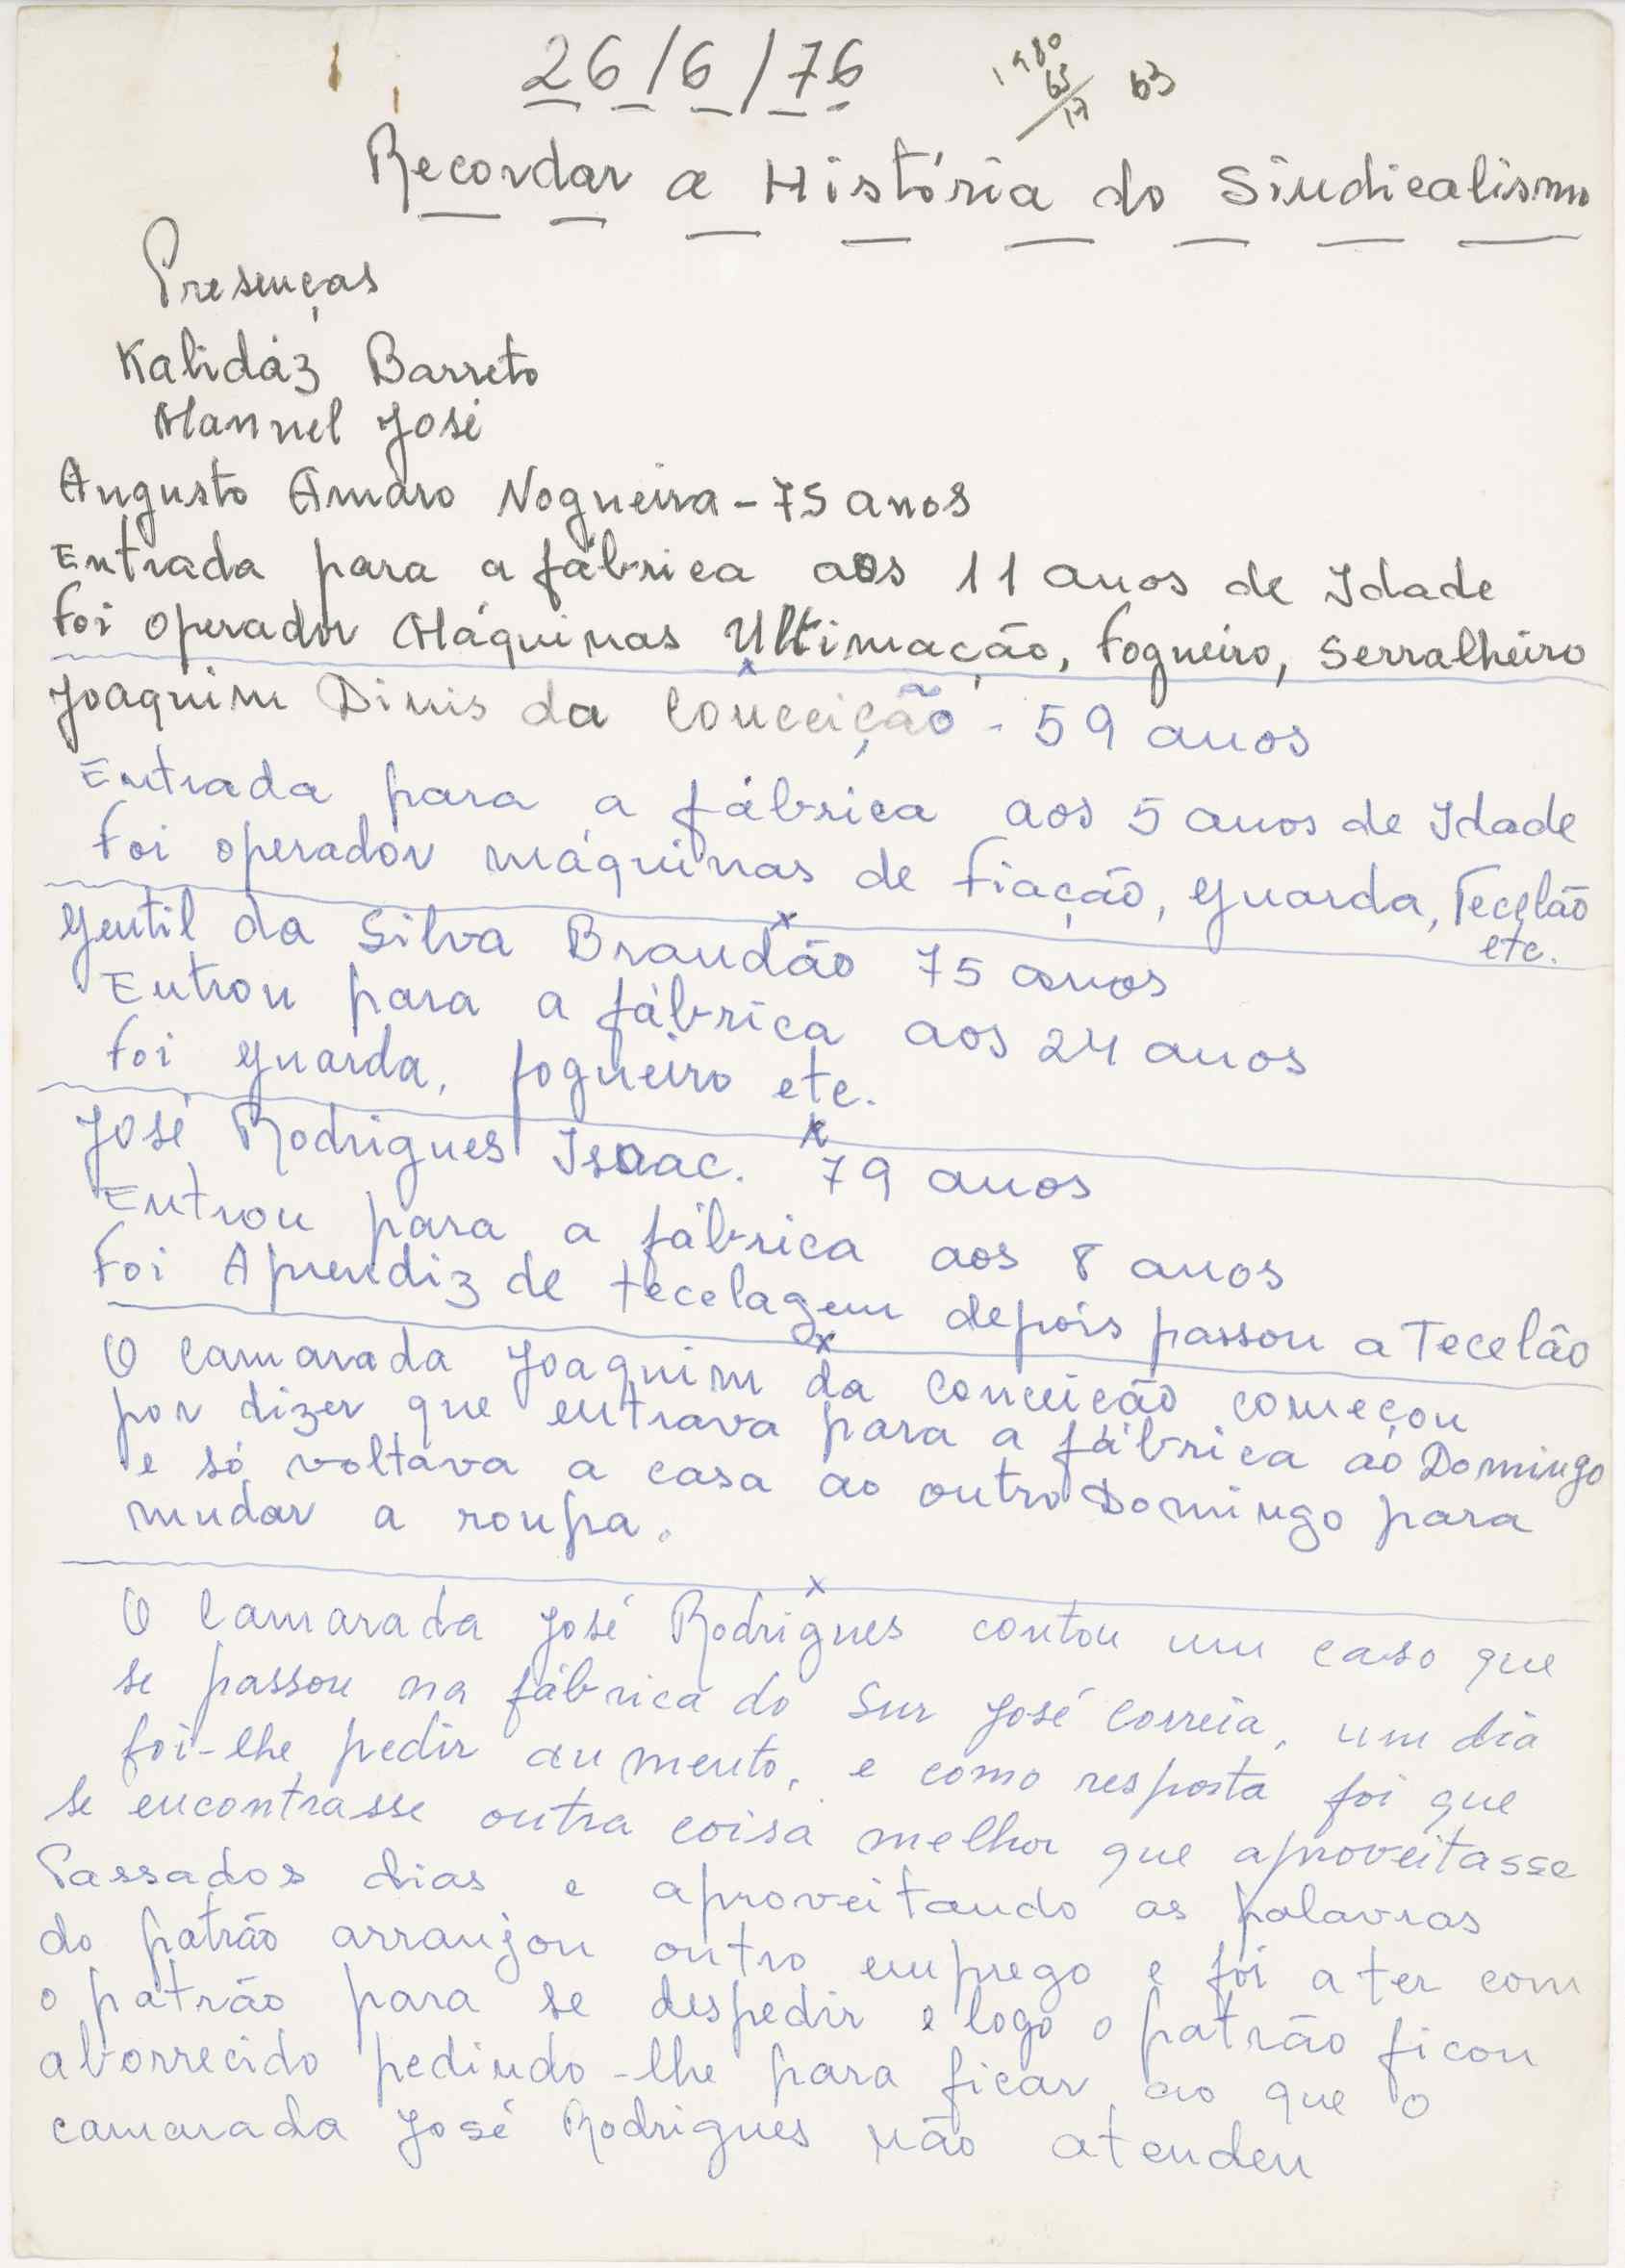 26/6/76
1980
63
65
17
Recordar a História do Sindicalismo
Presenças
Kalidáz Barreto
Manuel José
Augusto Amaro Nogueira - 75 anos
Entrada para a fábrica aos 11 anos de Idade
Foi Operador Máquinas Ultimação, Fogueiro, Serralheiro
x
Joaquim Dinis da Conceição - 59 anos
Entrada para a fábrica aos 5 anos de Idade
Foi operador máquinas de Fiação, Guarda, Tecelão
etc.
x
Gentil da Silva Brandão 75 anos
Entrou para a fábrica aos 24 anos
Foi guarda, fogueiro etc.
x
José Rodrigues Isaac. 79 anos
Entrou para a fábrica aos 8 anos
Foi Aprendiz de tecelagem depois passou a Tecelão
x
O Camarada Joaquim da Conceição começou
por dizer que entrava para a fábrica ao Domingo
e só voltava a casa ao outro Domingo para
mudar a roupa.
x
O Camarada José Rodrigues contou um caso que
se passou na fábrica do Snr José Correia, um dia
foi-lhe pedir aumento, e como resposta foi que
se encontrasse outra coisa melhor que aproveitasse
Passados dias e aproveitando as palavras
do patrão arranjou outro emprego e foi a ter com
o patrão para se despedir e logo o patrão ficou
aborrecido pedindo-lhe para ficar ao que o
camarada José Rodrigues não atendeu